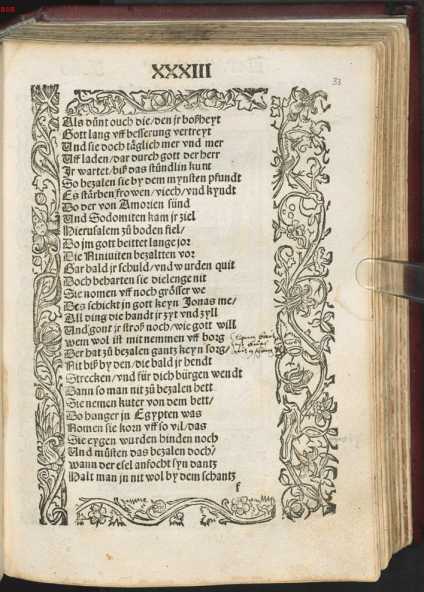 XXXIII
33
Als důnt ouch die/den jr boßheyt
Gott lang vff besserung vertreyt
Und sie doch täglich mer vnd mer
Uff laden/dar durch gott der herr
Jr wartet/biß das stündlin kunt
So bezalen sie by dem mynsten pfundt
Es stärben frowen/viech/vnd kyndt
Do der von Amorien sünd
Und Sodomiten kam jr ziel
Hierusalem zů boden fiel/
Do jm gott beittet lange jor
Die Niniuiten bezaltten vor
Gar bald jr schuld/vnd wurden quit
Doch beharten sie die lenge nit
Sie nomen vff noch grösser we
Des schickt jn gott keyn Jonas me/
All ding die handt jr zyt vnd zyll
Und gont jr stroß noch/wie gott will
wem wol ist mit nemmen vff borg
Der hat zů bezalen gantz keyn sorg/
Nit biß by den/die bald jr hendt
Strecken/vnd für dich bürgen wendt
Dann so man nit zů bezalen hett
Sie nemen kuter von dem bett/
Do hunger jn Egypten was
Nomen sie korn vff so vil/das
Sie eygen wurden hinden noch
Und müsten das bezalen doch/
wann der esel anfocht syn dantz
Halt man jn nit wol by dem schantz
f